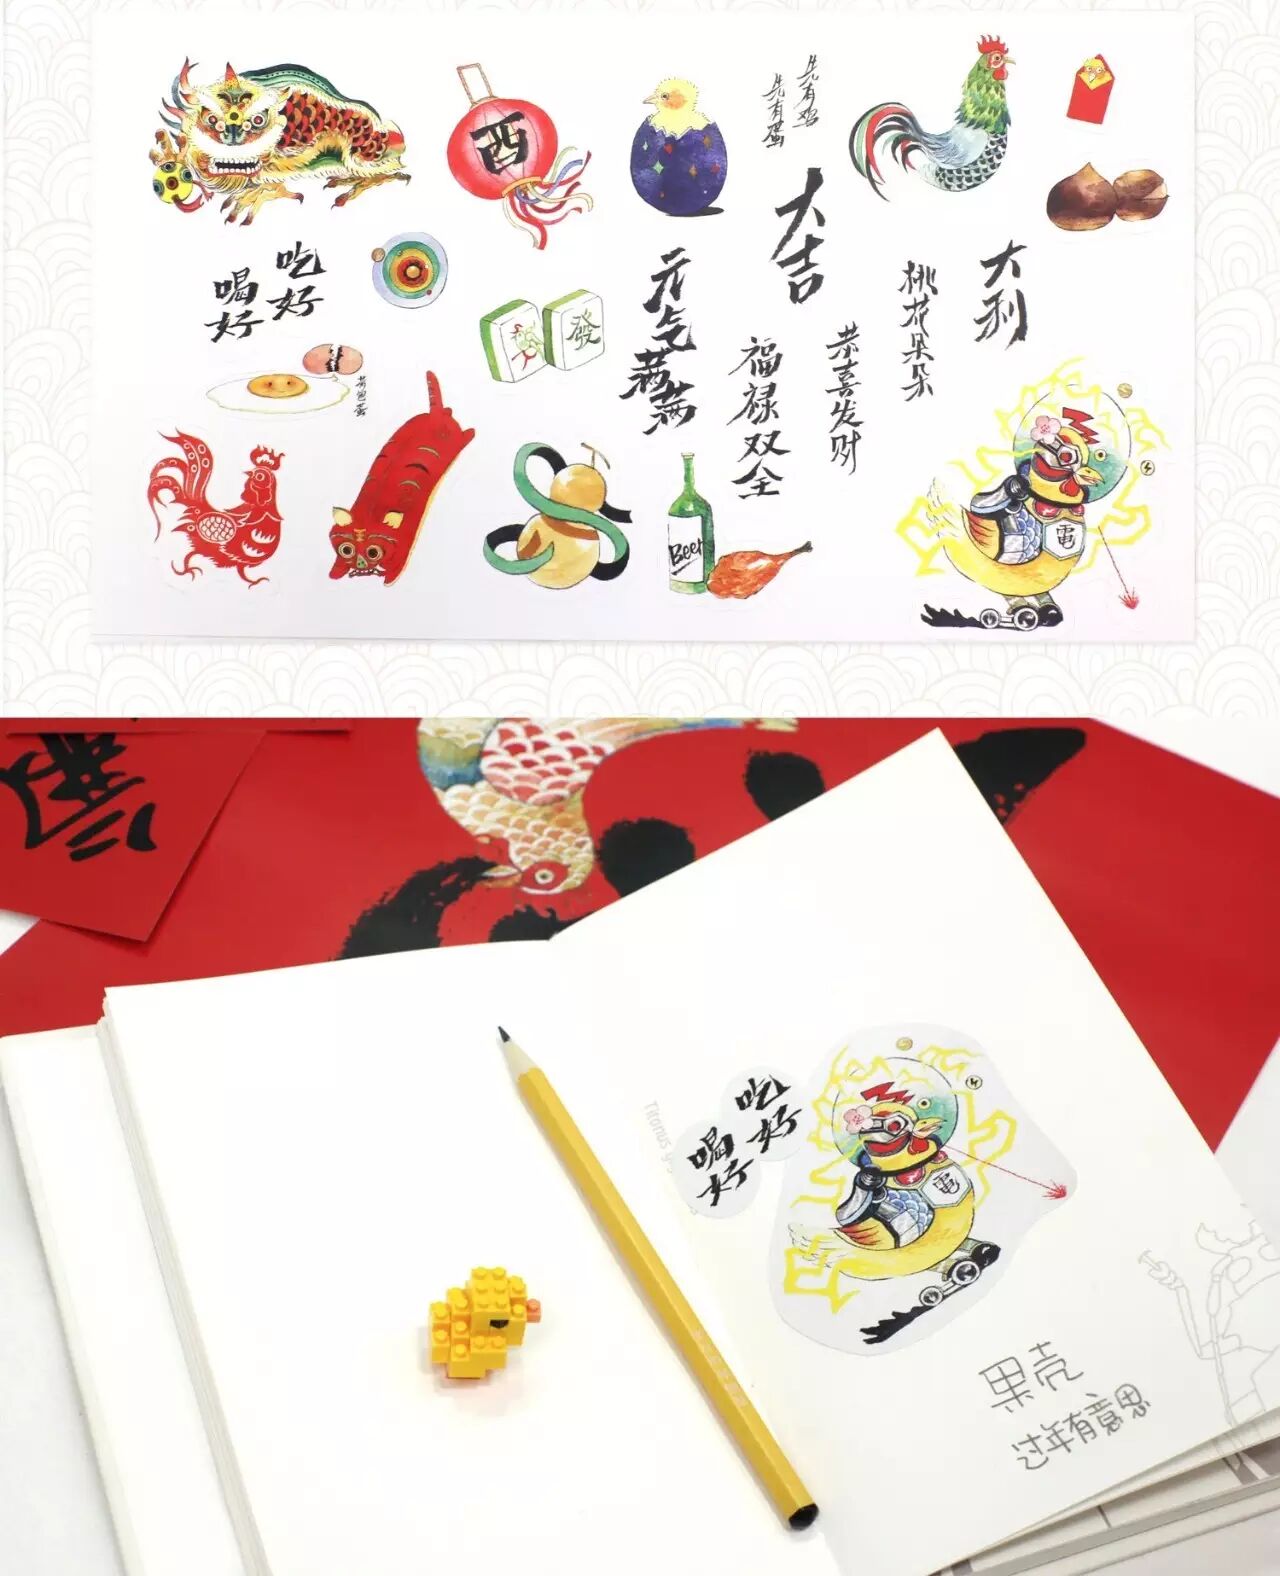 酉
先有鸡
先有蛋
大吉
大利
吃好
喝好
發
元气满满
福禄双全
恭喜发财
桃花朵朵
荷包蛋
Beer
電
吃好
喝好
電
果壳
过年有意思